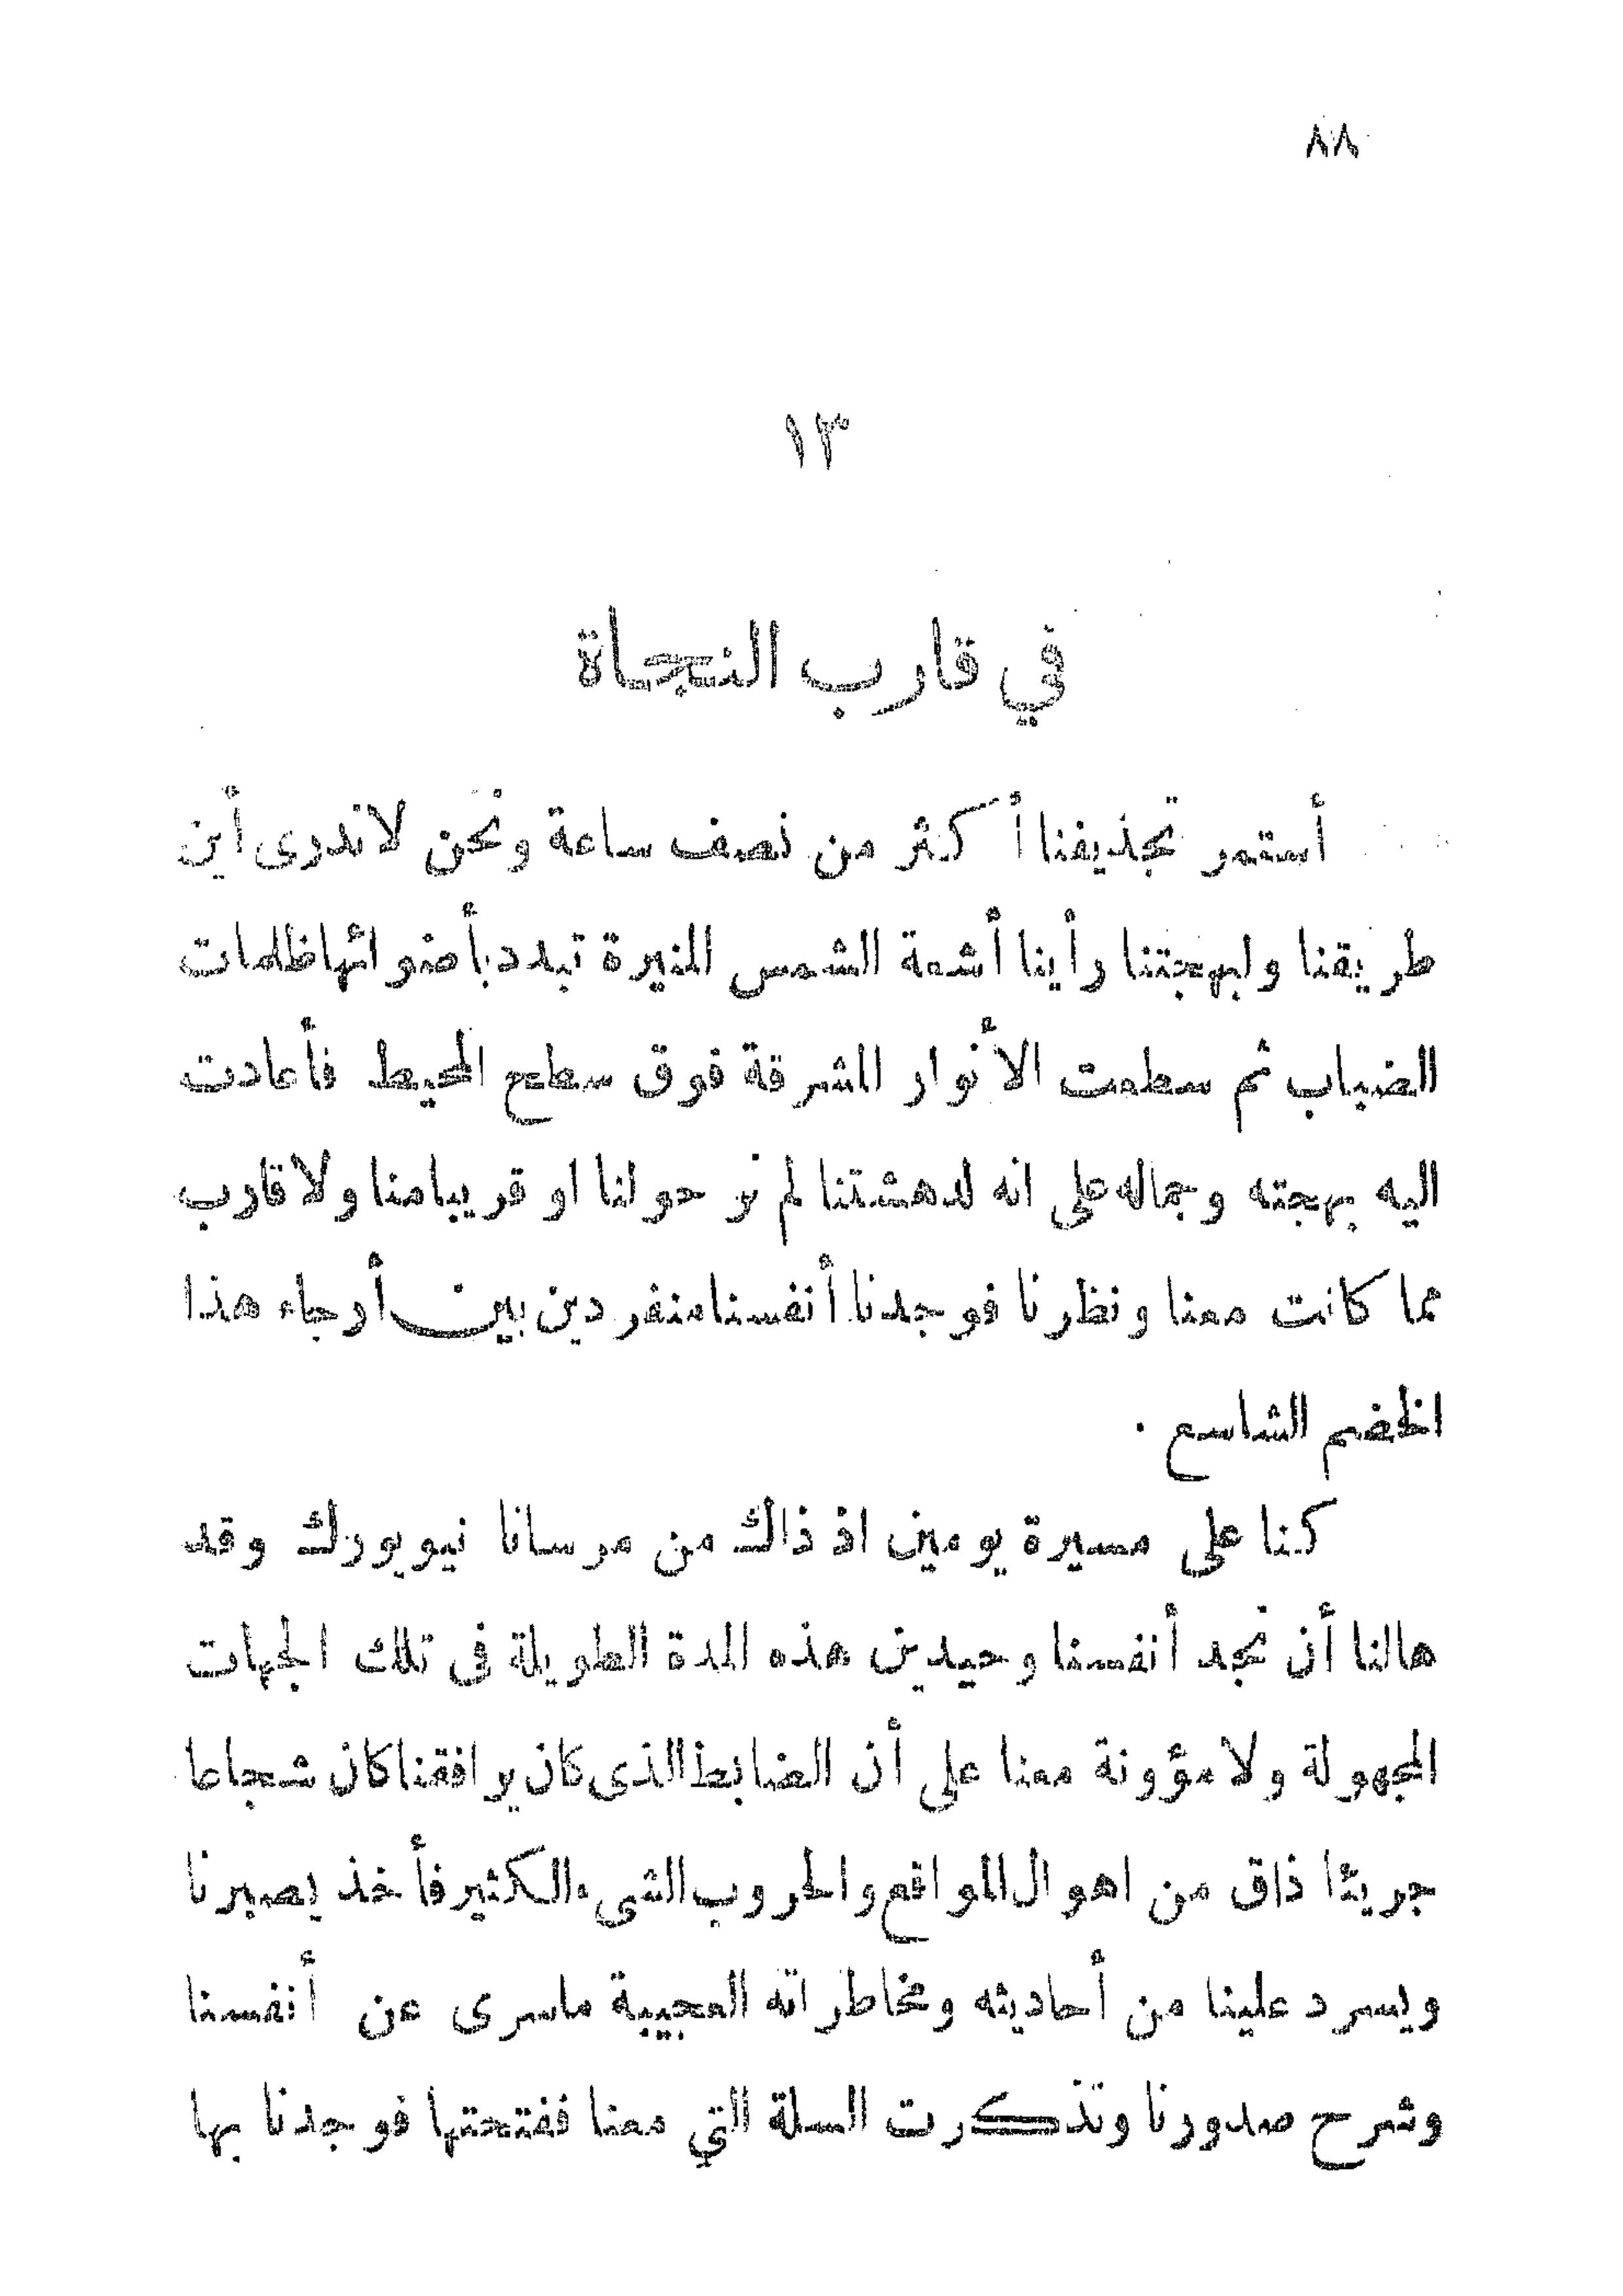 ٨٨
١٣
في قارب النجاة
أستمر تجذيفنا أكثر من نصف ساعة ونحن لاندرى أين
طريقنا ولبهجتنا رأينا أشعة الشمس المنيرة تبدد بأضوائها ظلمات
الضباب ثم سطعت الأنوار المشرقة فوق سطح المحيط فأعادت
اليه بهجته وجماله على انه لدهشتنا لم نر حولنا او قريبا منا ولا قارب
مما كانت معنا ونظرنا فوجدنا أنفسنا منفردين بين أرجاء هذا
الخضم الشاسع .
كنا على مسيرة يومين اذ ذاك من مرسانا نيويورك وقد
هالنا أن نجد أنفسنا وحيدين هذه المدة الطويلة فى تلك الجهات
المجهولة ولا مؤونة معنا على أن الضابط الذى كان يرافقنا كان شجاعا
جريئا ذاق من اهوال المواقع والحروب الشىء الكثير فأخذ يصبرنا
ويسرد علينا من أحاديثه ومخاطراته العجيبة ماسرى عن أنفسنا
وشرح صدورنا وتذكرت السلة التي معنا ففتحتها فوجدنا بها